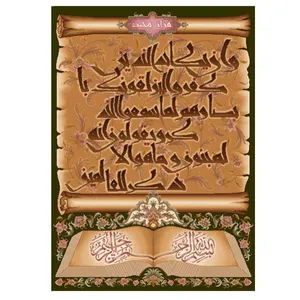 قرآن مجید
وان يكاد الذين
كفروا ليزلقونك با
بصارهم لما سمعوا الذ
كر و يقولون انه
لمجنون و ما هو الا
ذكر للعالمين
بسم الله الرحمن الرحيم